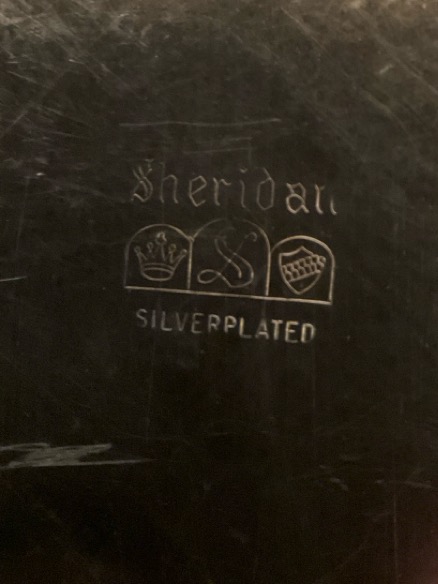 Sheridan
S
SILVERPLATED